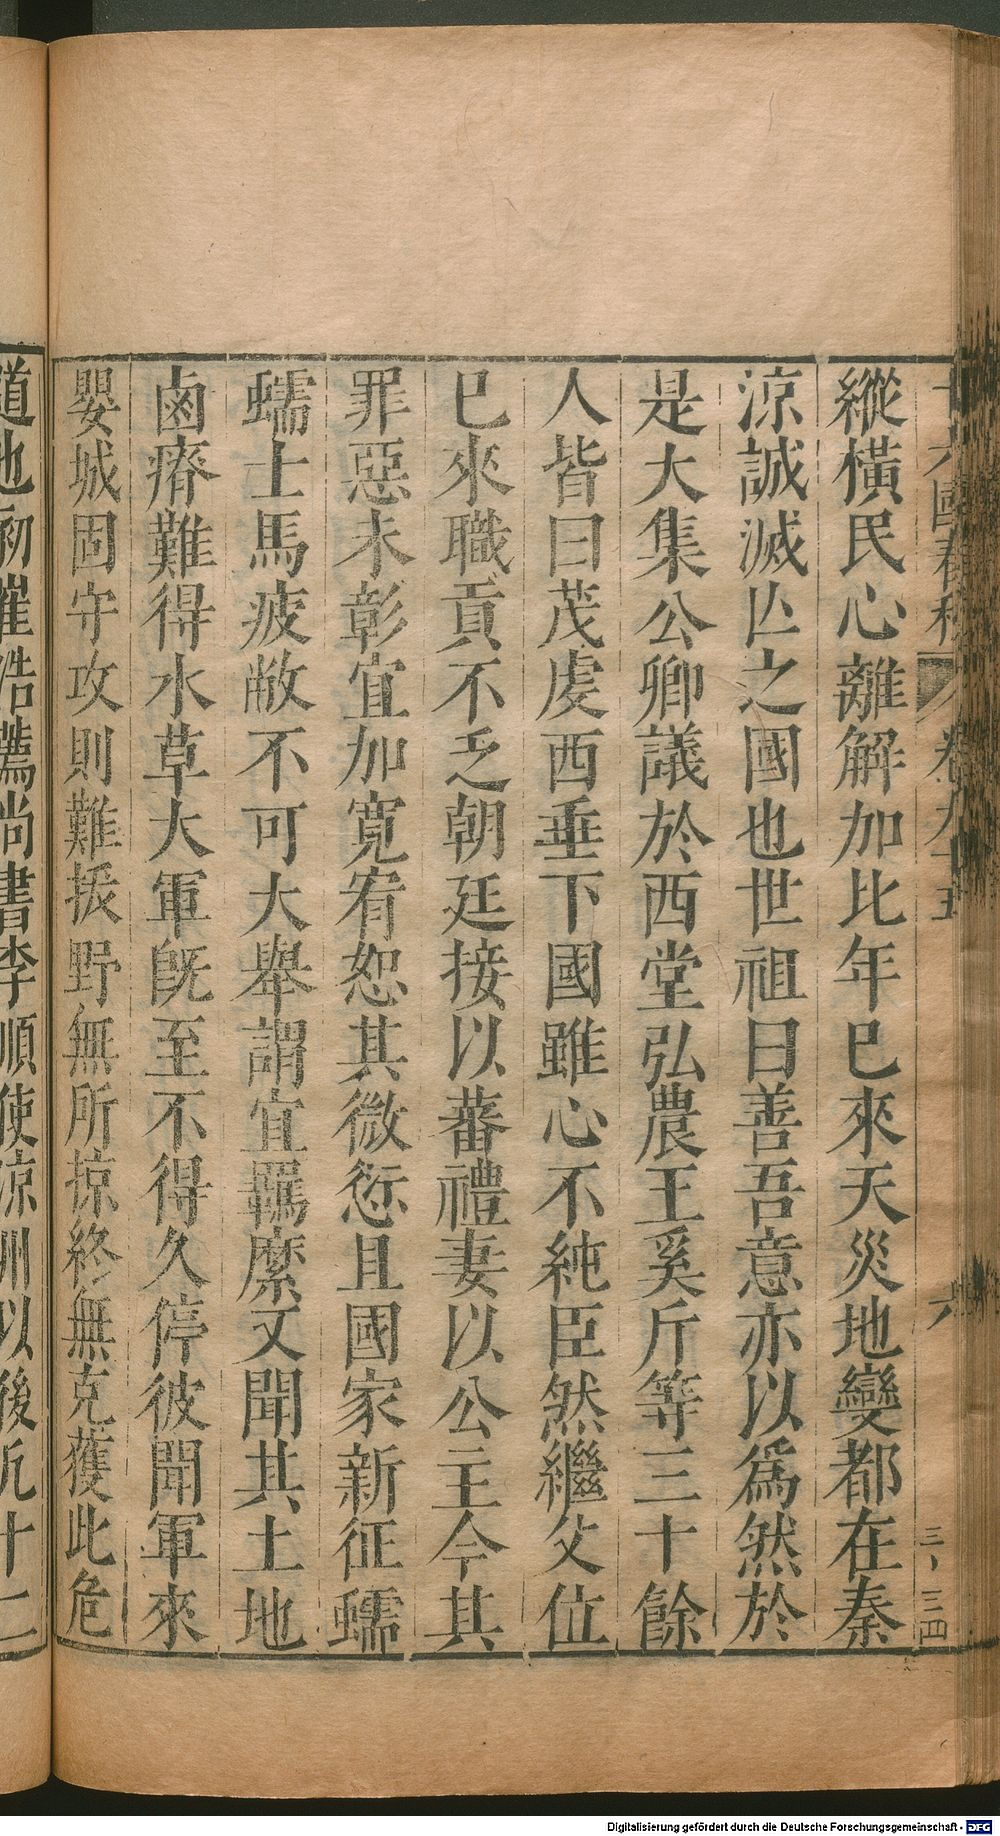 縱橫民心離解加比年已來天災地變都在秦
涼誠滅亾之國也世祖曰善吾意亦以爲然於
是大集公卿議於西堂弘農王奚斤等三十餘
人皆曰茂虔西垂下國雖心不純臣然繼父位
已來職貢不乏朝廷接以蕃禮妻以公主今其
罪惡未彰宜加寬宥恕其微愆且國家新征蠕
蠕士馬疲敝不可大舉謂宜羈縻又聞其土地
鹵瘠難得水草大軍旣至不得久停彼聞軍來
嬰城固守攻則難拔野無所掠終無克獲此危
道也初崔浩薦尚書李順使涼州以後凡十二
國春秋 卷九十五 六 三、三四
Digitalisierung gefördert durch die Deutsche Forschungsgemeinschaft - DFG